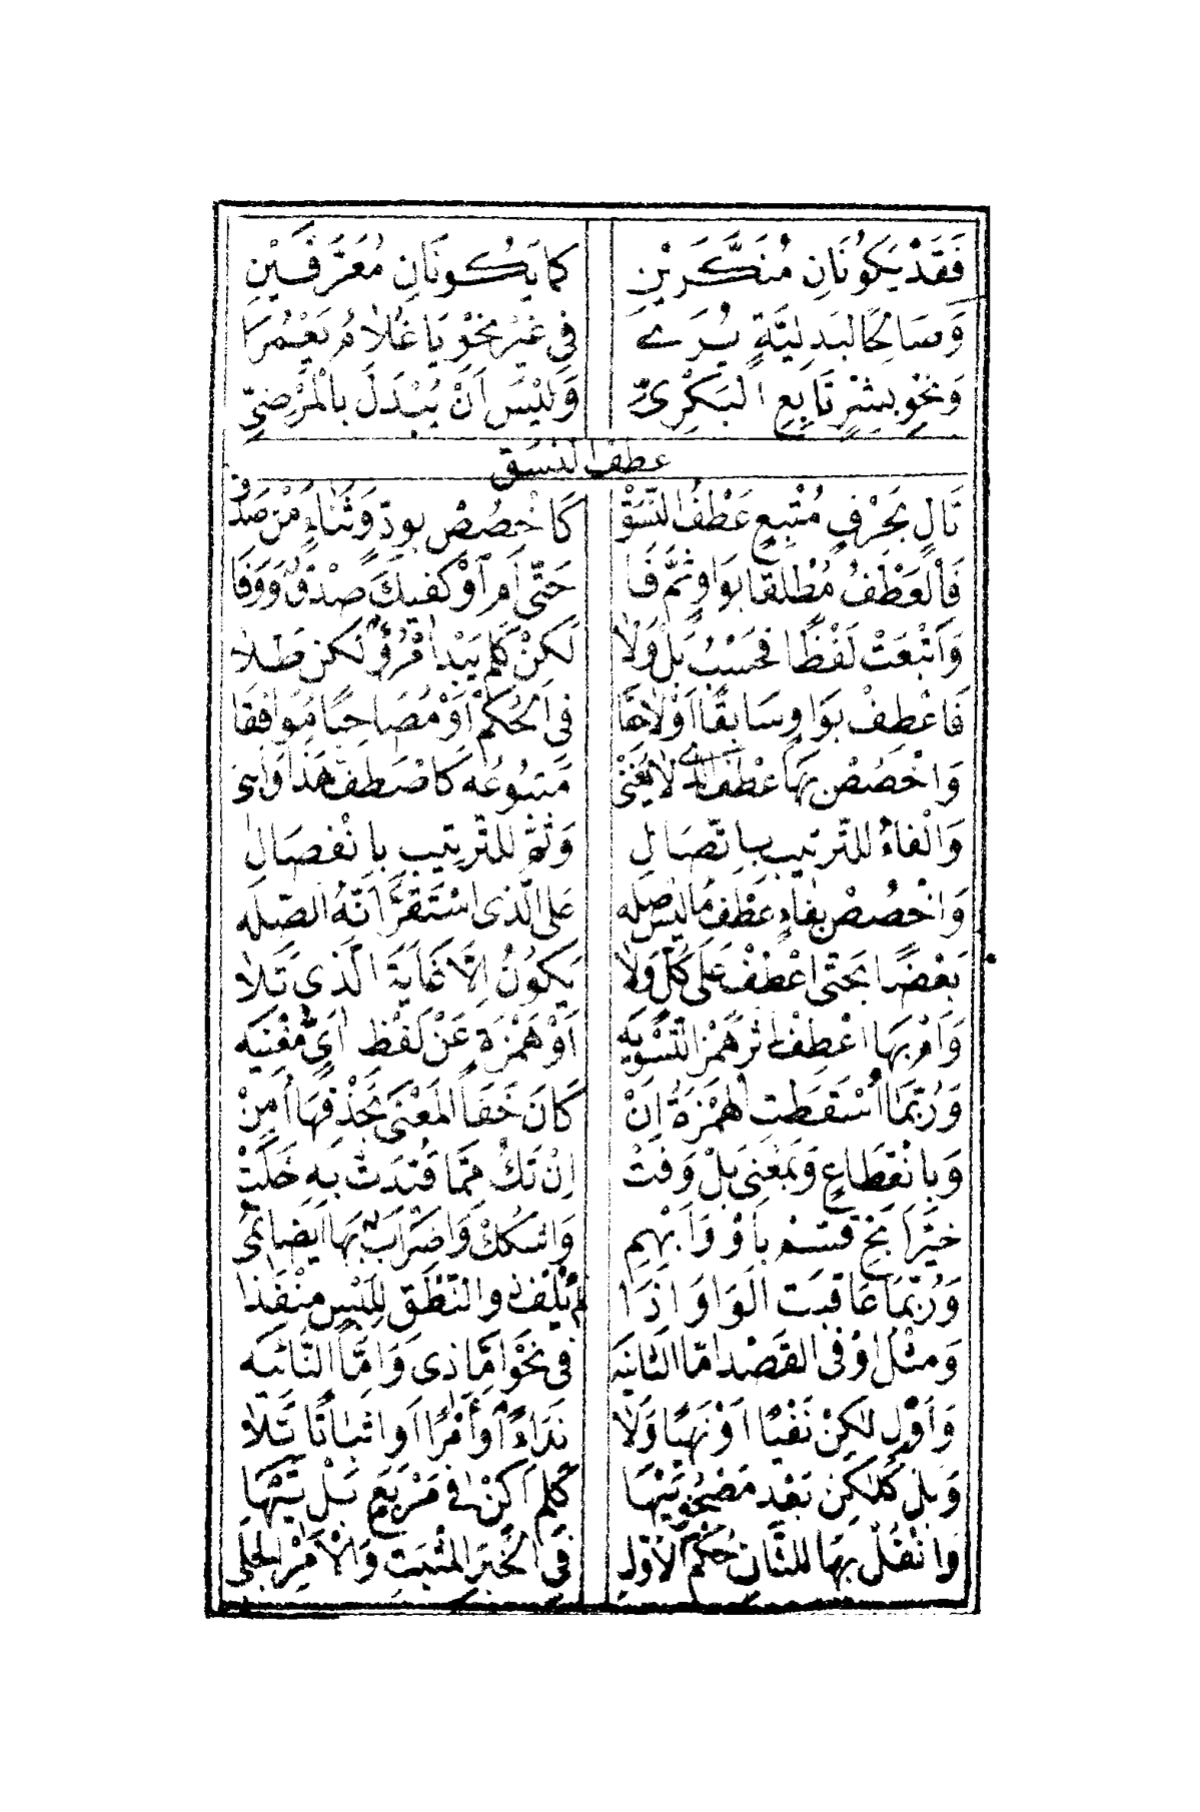 فَقَدْ يَكُونَانِ مُنَكَّرَيْنِ كما يَكُونَانِ مُعَرَّفَيْنِ
وَصَالِحًا لبَدَلِيَّةٍ يُرَى في غَيْرِ نَحْوِ يَا غُلَامُ يَعْمُرَا
وَنَحْوِ بِشْرٍ تَابِعِ الْبَكْرِيِّ وَلَيْسَ اَنْ يُبْدَلَ بِالْمَرْضِيِّ
عطف النسق
تَالٍ بِحَرْفٍ مُتْبِعٍ عَطْفُ النَّسَقْ كَاخْصُصْ بِوُدٍّ وَثَنَاءٍ مَنْ صَدَقْ
فَالْعَطْفُ مُطْلَقًا بِوَاوٍ ثُمَّ فَا حَتّى اَمْ اَوْ كَفِيكَ صِدْقٌ وَوَفَا
وَاَتْبَعَتْ لَفْظًا فَحَسْبُ بَلْ وَلَا لَكِنْ كَلَمْ يَبْدُ امْرُؤٌ لَكِنْ طَلَا
فَاعْطِفْ بِوَاوٍ سَابِقًا اَوْ لَاحِقًا فِي الحُكْمِ اَوْ مُصَاحِبًا مُوَافِقَا
وَاخْصُصْ بِهَا عَطْفَ الَّذِي لَا يُغْنِي مَتْبُوعُهُ كَاصْطَفَّ هَذَا وَابْنِي
وَالْفَاءُ للتَّرتِيبِ بِاتِّصَالِ وَثُمَّ لِلتَّرتِيبِ بِانْفِصَالِ
وَاخْصُصْ بِفَاءٍ عَطْفَ مَا لَيْسَ صِلَه عَلَى الَّذِي اسْتَقَرَّ اَنَّهُ الصِّلَه
بَعْضًا بِحَتّى اعْطِفْ عَلَى كُلٍّ وَلَا يَكُونُ اِلَّا غَايَةَ الَّذِي تَلَا
وَاَمْ بِهَا اعْطِفْ اِثْرَ هَمْزِ التَّسْوِيَه اَوْ هَمْزَةٍ عَنْ لَفْظِ اَيٍّ مُغْنِيَه
وَرُبَّمَا اُسْقِطَتِ الهَمْزَةُ اِنْ كَانَ خَفَا المَعْنَى بِحَذْفِهَا اُمِنْ
وَبِانْقِطَاعٍ وَبِمَعْنَى بَلْ وَفَتْ اِنْ تَكُ مِمَّا قُيِّدَتْ بِهِ خَلَتْ
خَيِّرْ اَبِحْ قَسِّمْ بِاَوْ وَاَبْهِمِ وَاشْكُكْ وَاِضْرَابٌ بِهَا اَيْضًا نُمِي
وَرُبَّمَا عَاقَبَتِ الوَاوَ اِذَا لَمْ يُلْفِ ذُو النُّطْقِ لِلَبْسٍ مَنْفَذَا
وَمِثْلُ اَوْ فِي القَصْدِ اِمَّا الثَّانِيَه فِي نَحْوِ اِمَّا ذِي وَاِمَّا النَّائِيَه
وَاَوْلِ لَكِنْ نَفْيًا اَوْ نَهْيًا وَلَا نِدَاءً اَوْ اَمْرًا اَوِ اثْبَاتًا تَلَا
وَبَلْ كَلَكِنْ بَعْدَ مَصْحُوبَيْهَا كَلَمْ اَكُنْ فِي مَرْبَعٍ بَلْ تَيْهَا
وَانْقُلْ بِهَا لِلثَّانِ حُكْمَ الْاَوَّلِ فِي الخَبَرِ المُثْبَتِ وَالْاَمْرِ الجَلِي